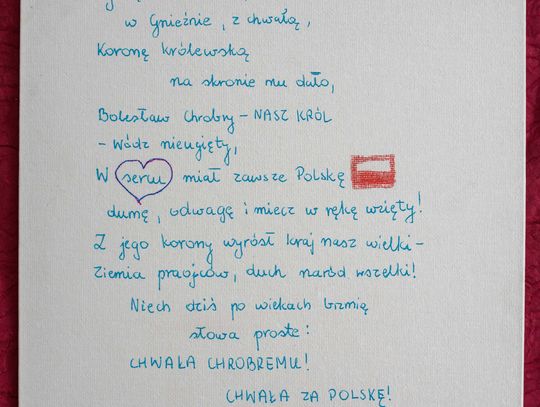 w Gnieźnie, z chwałą,
Koronę królewską
na skronie mu dało,
Bolesław Chrobry – NASZ KRÓL
– Wódz nieugięty,
W sercu miał zawsze Polskę
dumę, odwagę i miecz w rękę wzięty!
Z jego korony wyrósł kraj nasz wielki –
Ziemia praojców, duch naród wszelki!
Niech dziś po wiekach brzmią
słowa proste:
CHWAŁA CHROBREMU!
CHWAŁA ZA POLSKĘ!